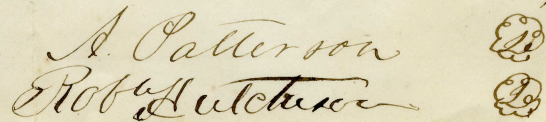 A. Patterson
Robt Hutchison